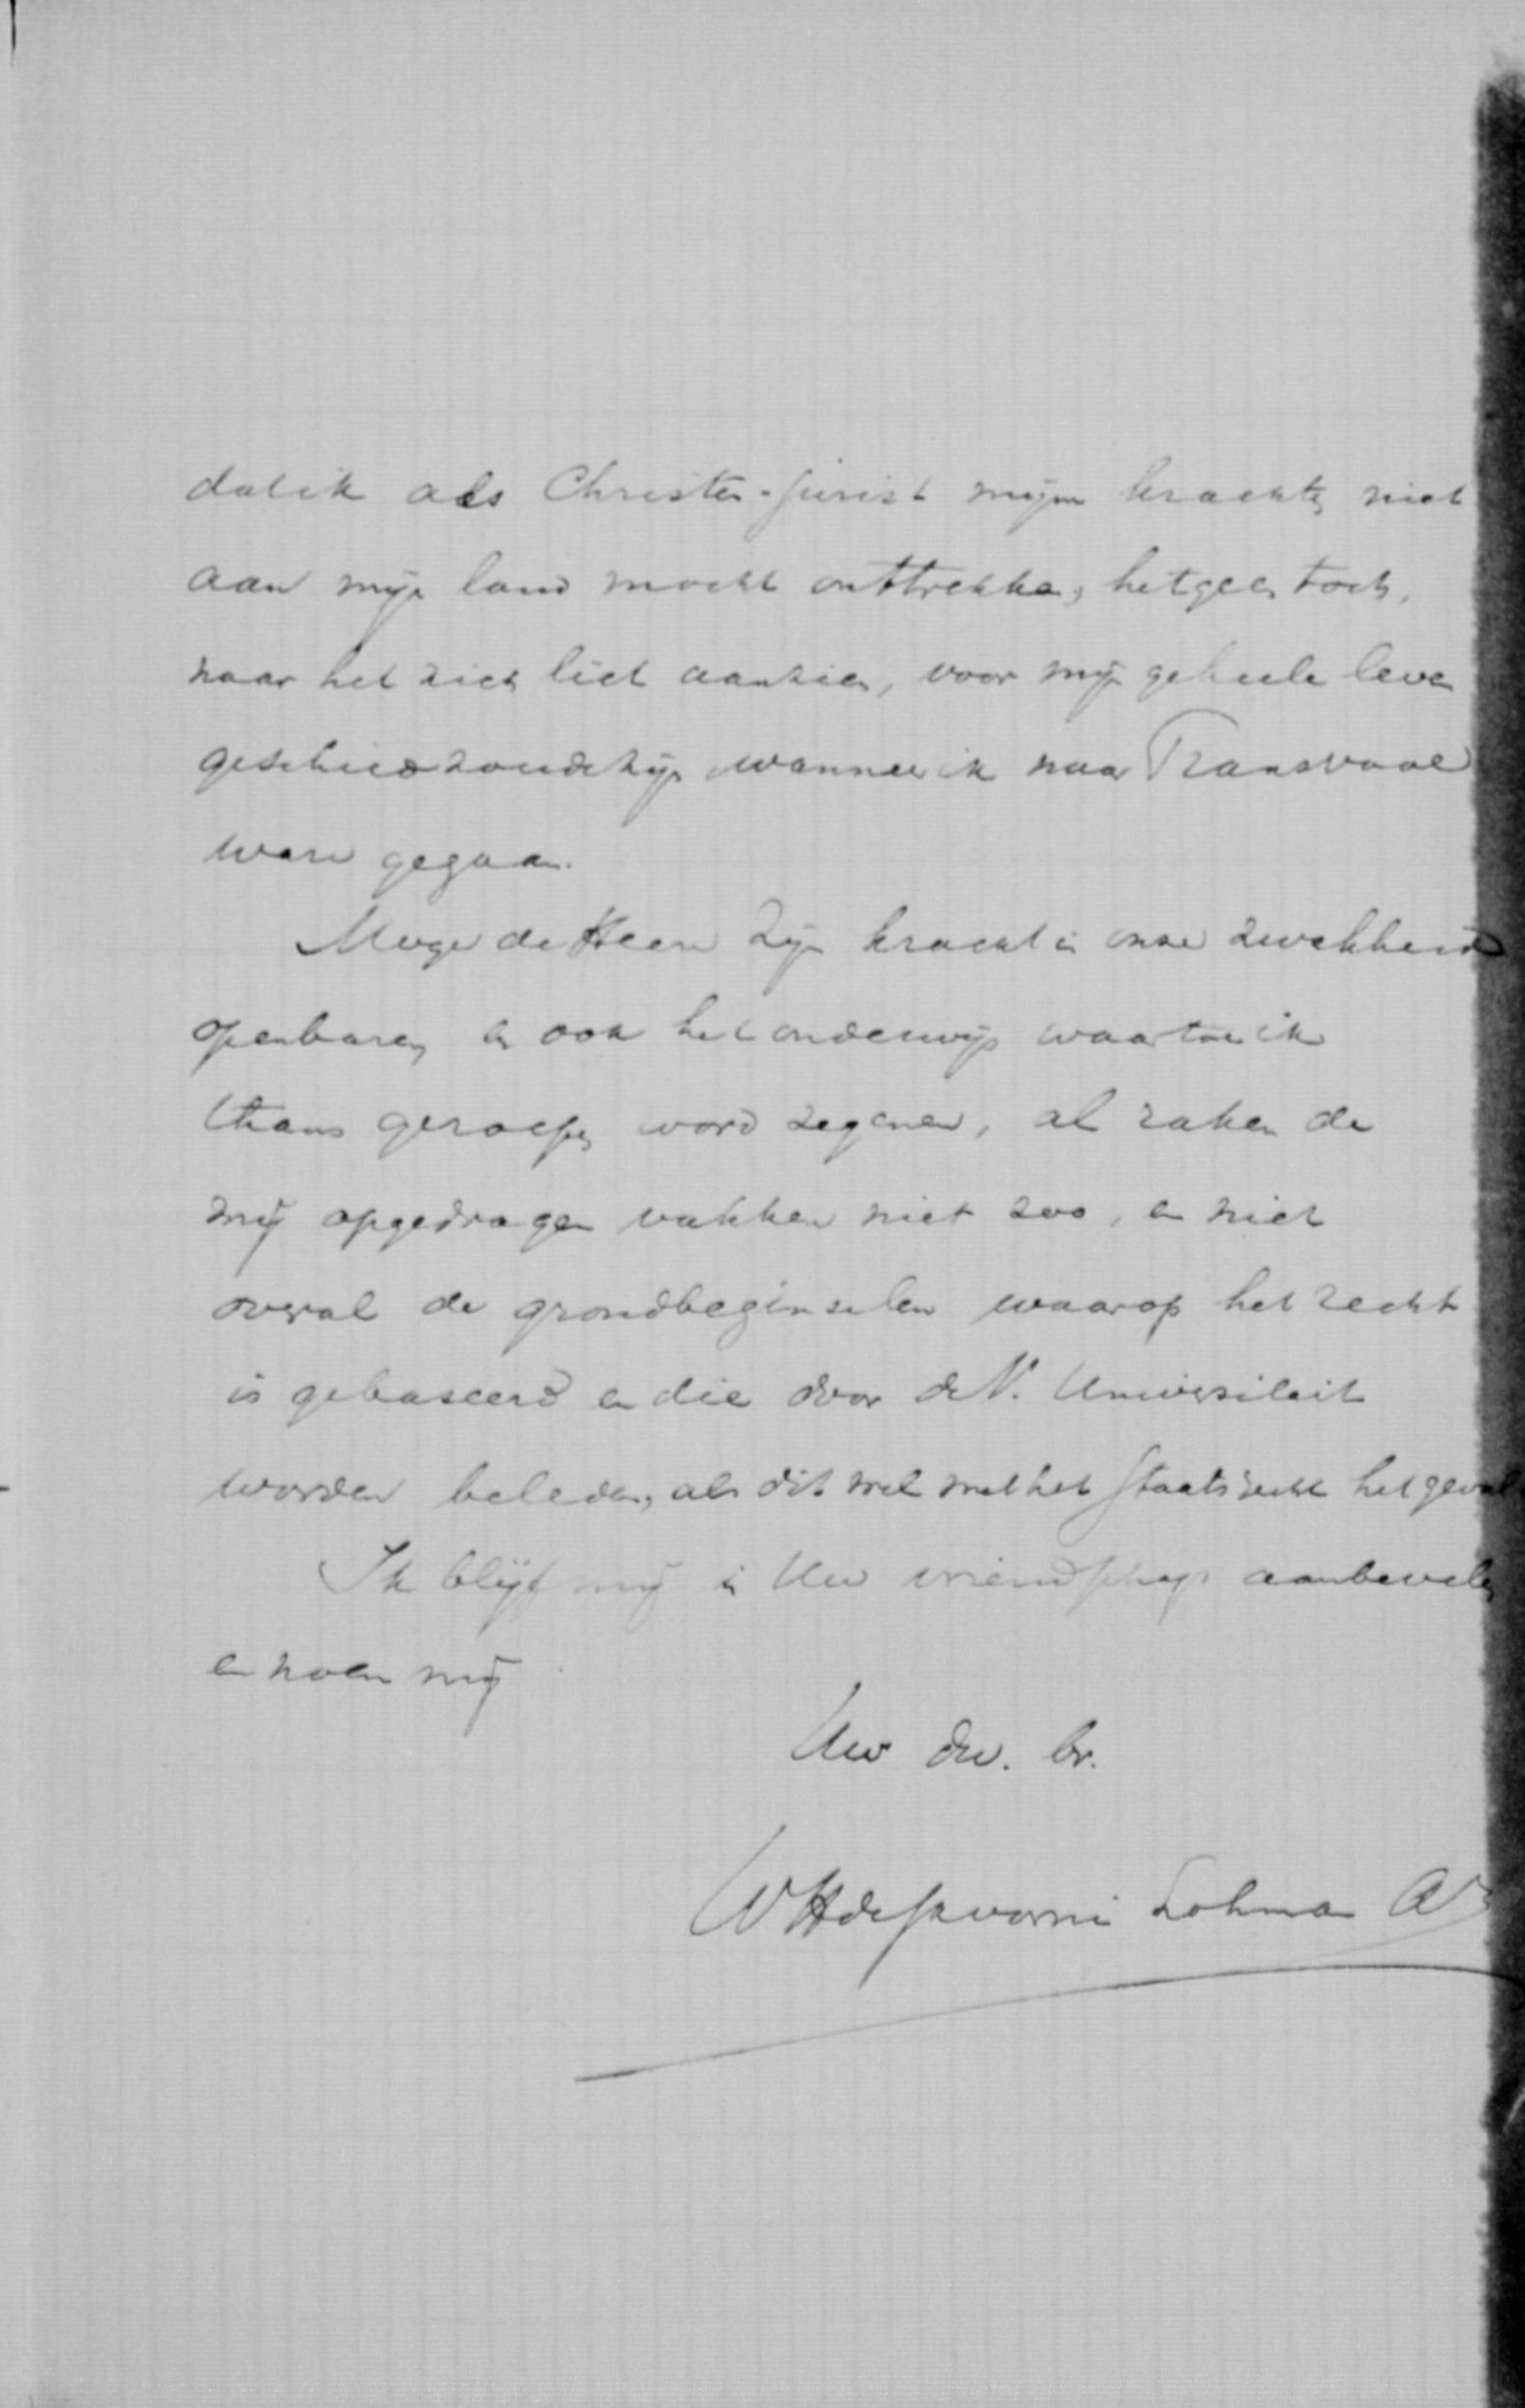 dat ik als Christen-jurist mijn krachten niet
aan mijn land mocht onttrekken, hetgeen toch,
naar het zich liet aanzien, voor mijn geheele leven
geschied zoude zijn wanneer ik naar Transvaal
ware gegaan.
Moge de Heere Zijn kracht in onze zwakheid
openbaren en ook het onderwijs waartoe ik
thans geroepen word zegenen, al raken de
mij opgedragen vakken niet zoo, en niet
overal de grondbeginselen waarop het recht
is gebaseerd en die door de V. Universiteit
worden beleden, als dit wel met het staatsrecht het geval
Ik blijf mij in Uw vriendschap aanbevelen
en noem mij
Uw dw. br.
WH de Savornin Lohman